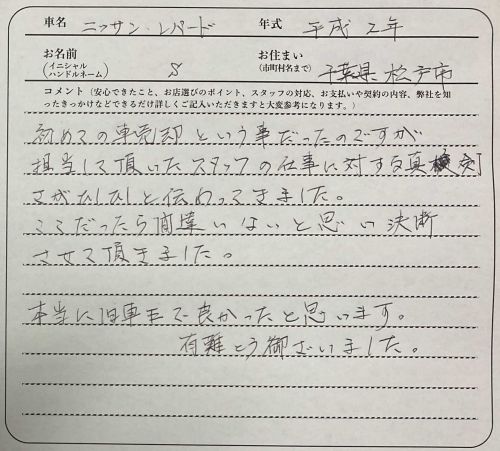 車名 ニッサン・レパード 年式 平成 2年
お名前 お住まい
(イニシャル ハンドルネーム) S (市町村名まで) 千葉県 松戸市
コメント(安心できたこと、お店選びのポイント、スタッフの対応、お支払いや契約の内容、弊社を知
ったきっかけなどできるだけ詳しくご記入いただきますと大変参考になります。)
初めての車売却という事だったのですが
担当して頂いたスタッフの仕事に対する真剣
さがひしひしと伝わってきました。
ここだったら間違いないと思い決断
させて頂きました。
本当に旧車王で良かったと思います。
有難とう御ざいました。